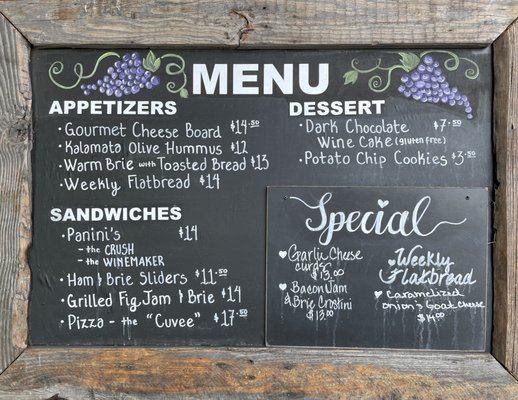 MENU
APPETIZERS
• Gourmet Cheese Board $14.50
• Kalamata Olive Hummus $12
• Warm Brie with Toasted Bread $13
• Weekly Flatbread $14
SANDWICHES
• Panini's $14
- the CRUSH
- the WINEMAKER
• Ham & Brie Sliders $11.50
• Grilled Fig Jam & Brie $14
• Pizza - the "Cuvee" $17.50
DESSERT
• Dark Chocolate $7.50
Wine Cake (gluten free)
• Potato Chip Cookies $3.50
Special
Garlic Cheese
curds
$13.00
Bacon Jam
& Brie Crostini
$13.00
Weekly
Flatbread
Caramelized
onion's Goat Cheese
$14.00